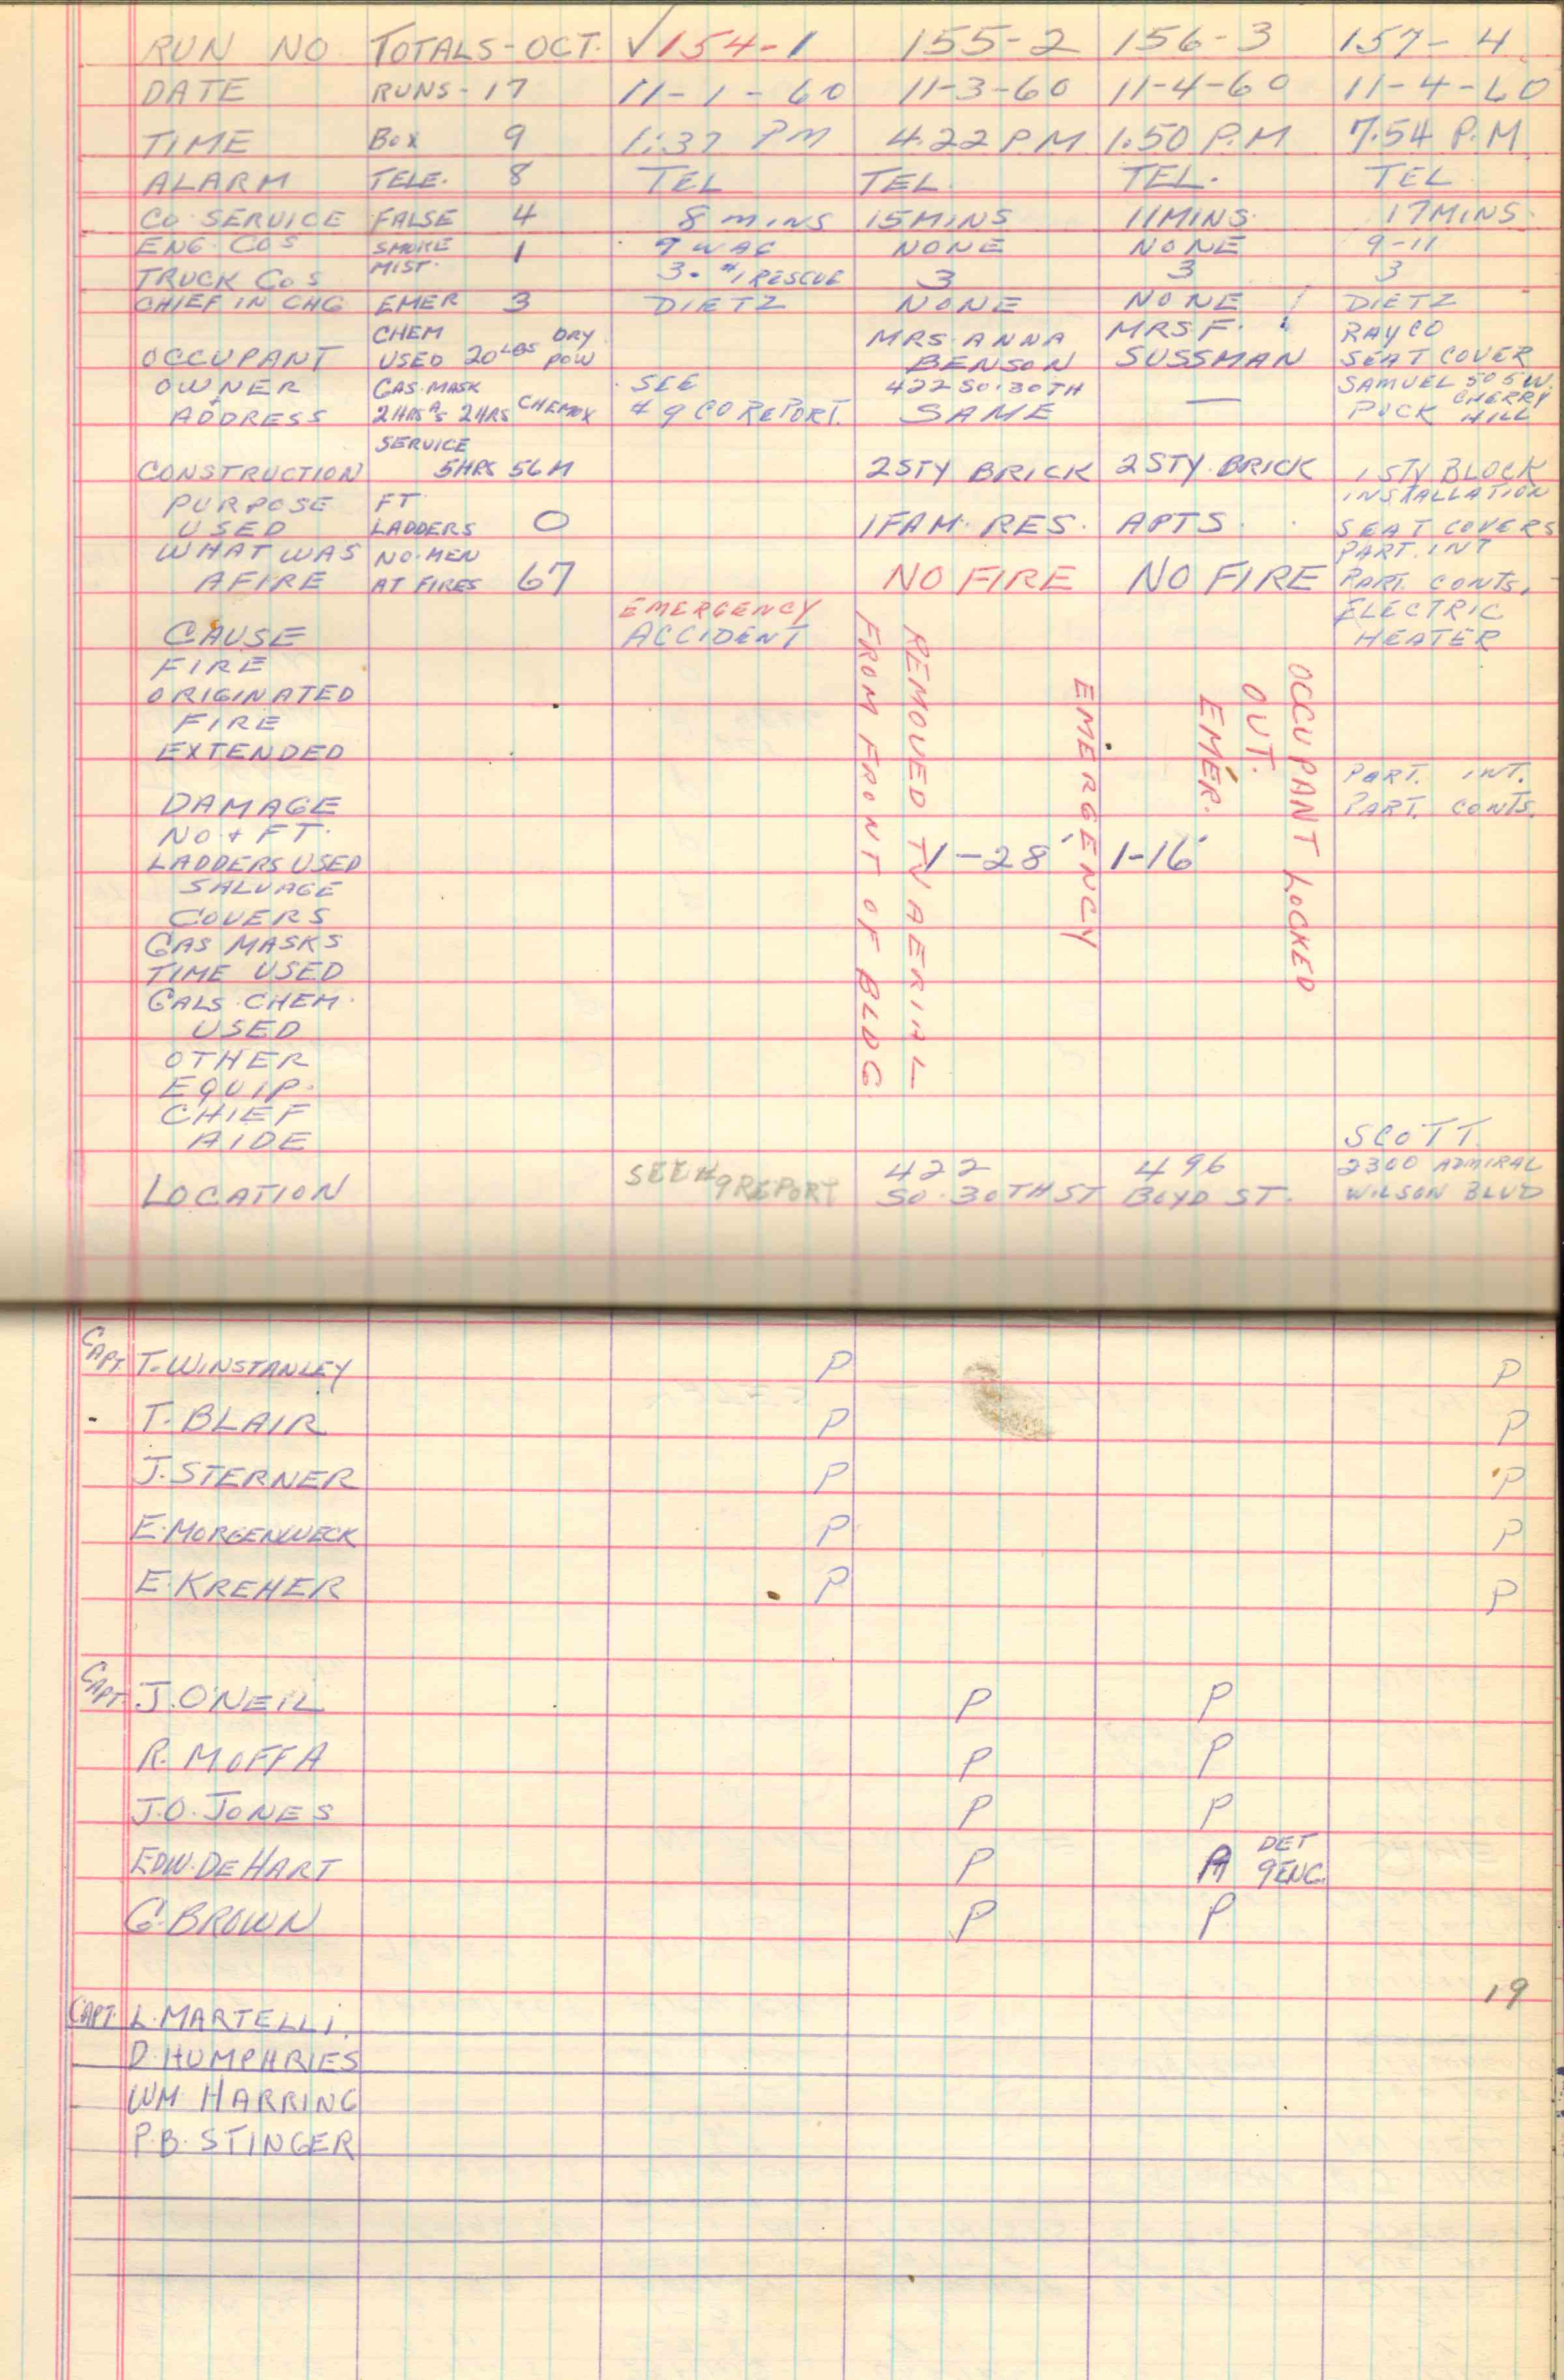 RUN NO TOTALS - OCT. √154-1 155-2 156-3 157-4
DATE RUNS - 17 11-1-60 11-3-60 11-4-60 11-4-60
TIME BOX 9 1:37 PM 4.22 PM 1.50 P.M 7.54 P.M
ALARM TELE. 8 TEL TEL. TEL. TEL
CO SERVICE FALSE 4 8 MINS 15 MINS 11 MINS. 17 MINS.
ENG. COS SMOKE 1 9 NONE NONE 9-11
MIST.
TRUCK COS 3. #1 RESCUE 3 3 3
CHIEF IN CHG EMER 3 DIETZ NONE NONE DIETZ
CHEM DRY MRS. ANNA MRS F. RAYCO
OCCUPANT USED 20 LBS POW BENSON SUSSMAN SEAT COVER
OWNER GAS MASK SEE 422 SO. 30TH SAMUEL 505 W. CHERRY
ADDRESS 2 HRS 2 HRS CHEMOX #9 CO REPORT. SAME — PUCK HILL
SERVICE
CONSTRUCTION 5 HRS 56 M 2 STY BRICK 2 STY. BRICK 1 STY BLOCK
PURPOSE FT INSTALLATION
USED LADDERS 0 1 FAM. RES. APTS. SEAT COVERS
WHAT WAS NO. MEN PART. INT
AFIRE AT FIRES 67 NO FIRE NO FIRE PART. CONTS.
EMERGENCY ELECTRIC
CAUSE ACCIDENT HEATER
FIRE
ORIGINATED
FIRE
EXTENDED
REMOVED TV AERIAL
FROM FRONT OF BLDG.
EMERGENCY
OCCUPANT LOCKED
OUT.
EMER.
PART. INT.
DAMAGE PART. CONTS.
NO. & FT.
LADDERS USED 1-28' 1-16'
SALVAGE
COVERS
GAS MASKS
TIME USED
GALS. CHEM.
USED
OTHER
EQUIP.
CHIEF
AIDE SCOTT.
422 496 2300 ADMIRAL
LOCATION SEE #9 REPORT SO. 30TH ST BOYD ST. WILSON BLVD
CAPT. T. WINSTANLEY P P
T. BLAIR P P
J. STERNER P P
E. MORGENWECK P P
E. KREHER P P
CAPT. J. O'NEIL P P
R. MOFFA P P
J.O. JONES P P
DET
EDW. DE HART P A 9 ENG.
G. BROWN P P
19
CAPT. L. MARTELLI.
D. HUMPHRIES
WM HARRING
P.B. STINGER